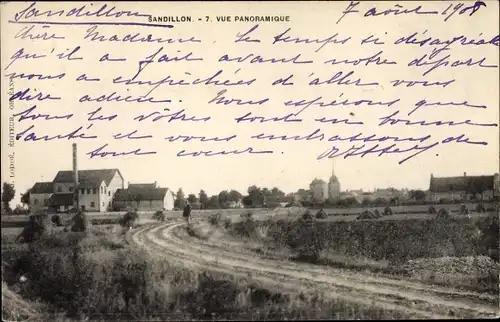 Sandillon
7 août 1908
SANDILLON. - 7. VUE PANORAMIQUE
Chère Madame. Le temps si désagréable
qu'il a fait avant notre départ
nous a empêchées d'aller vous
dire adieu. Nous espérons que
tous les votres sont en bonne
santé et vous embrassons de
tout cœur.
ÉDITEUR, ORLÉANS